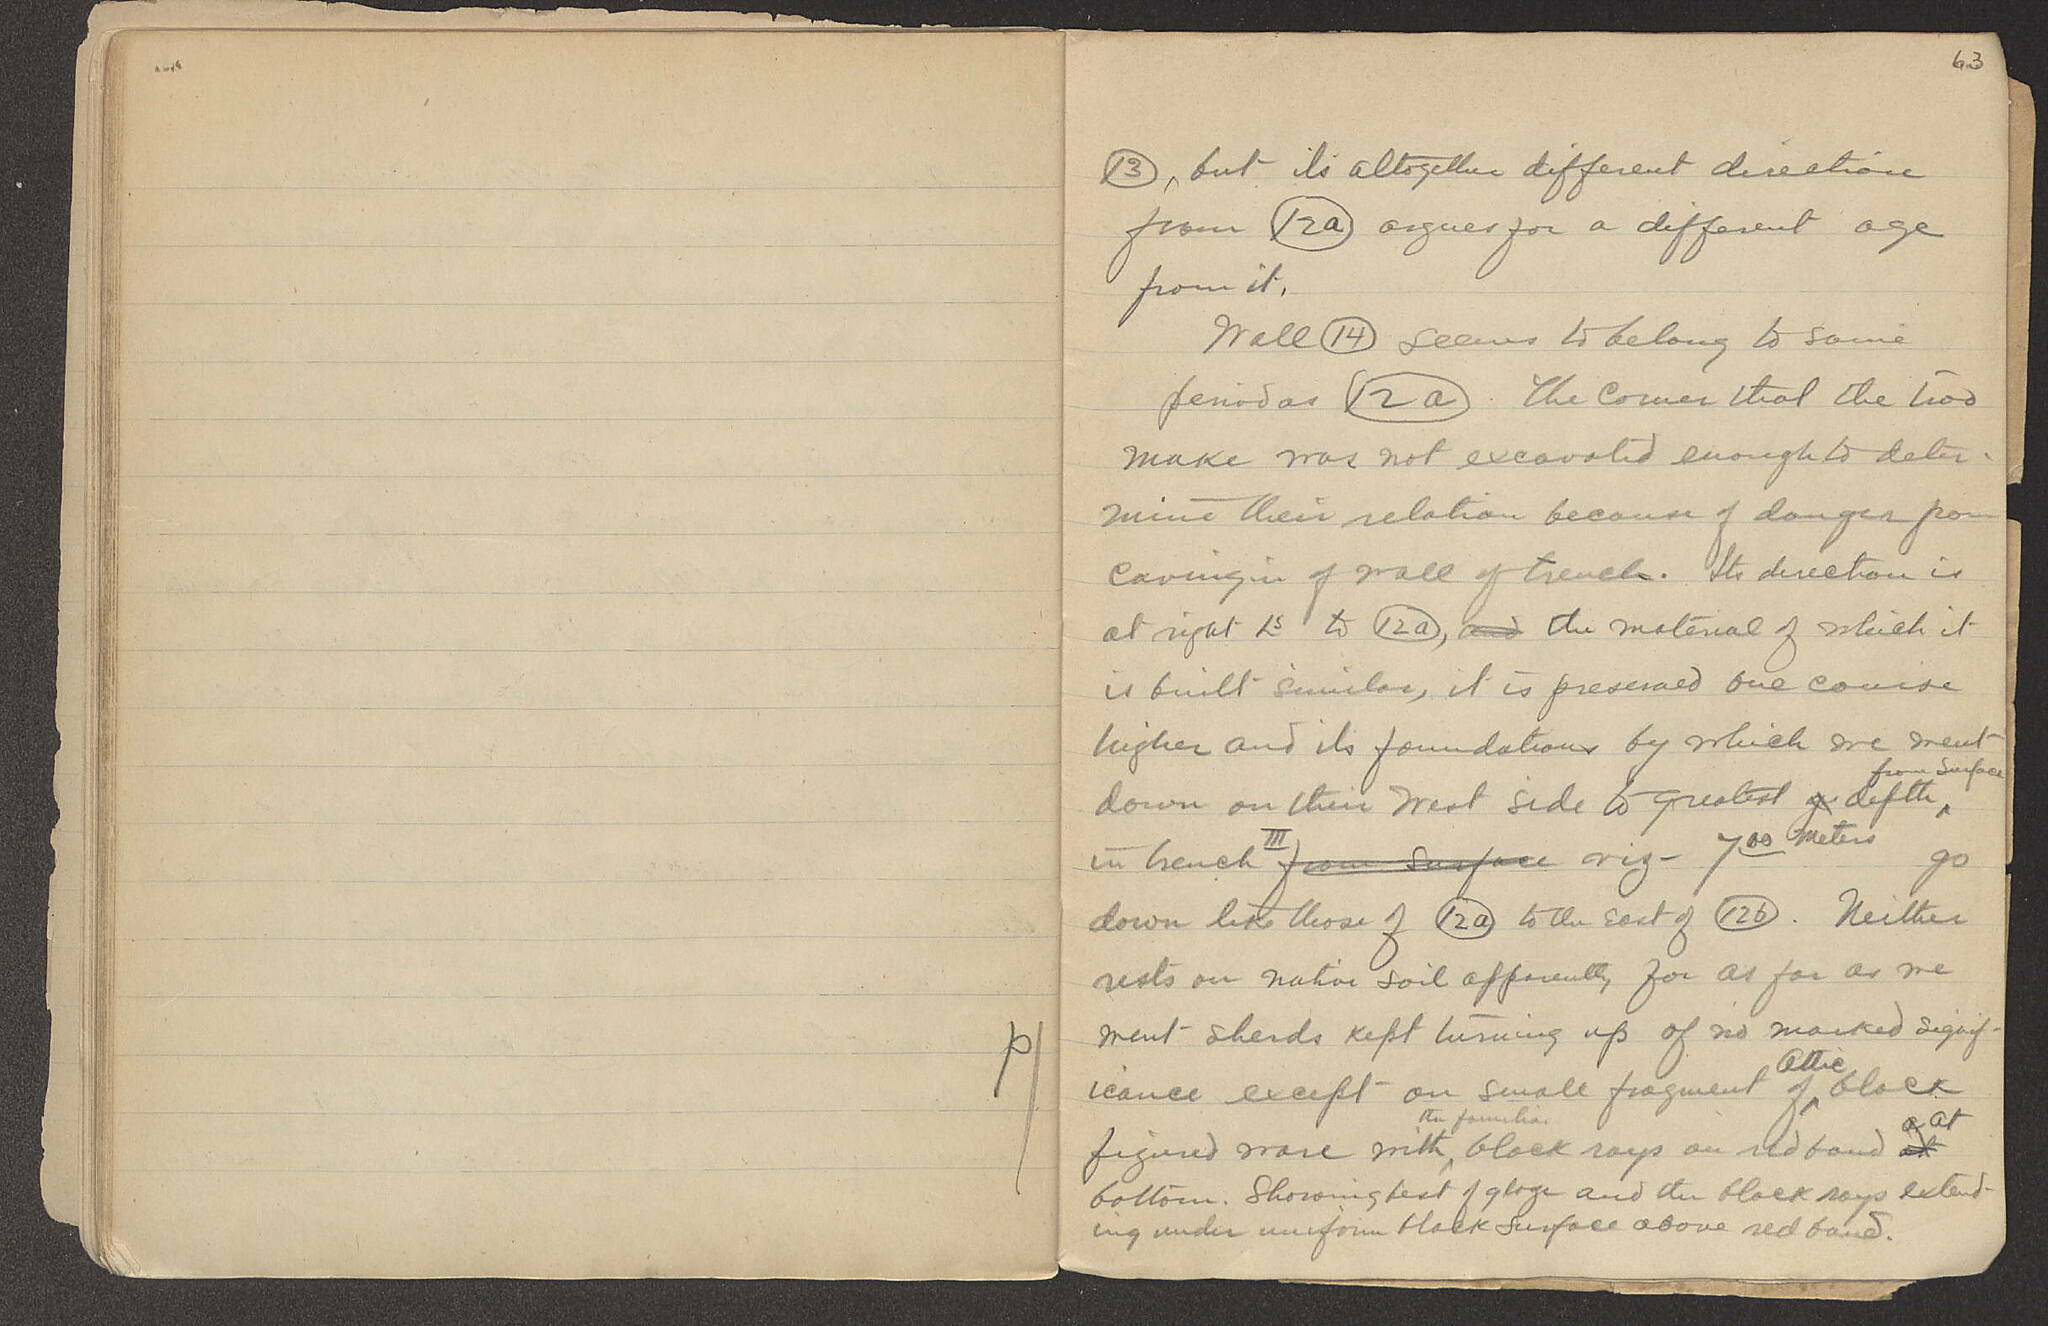 63
(13), but its altogether different direction
from (12a) argues for a different age
from it.
Wall (14) seems to belong to same
period as (12a). The corner that the two
make was not excavated enough to deter-
mine their relation because of danger from
caving in of wall of trench. Its direction is
at right Ls to (12a), and the material of which it
is built similar, it is preserved one course
higher and its foundations by which we went
from surface
down on their West side to greatest depth
in trench III from surface viz - 7.00 meters go
down like those of (12a) to the east of (12b). Neither
rests on native soil apparently, for as far as we
went sherds kept turning up of no marked signif-
icance except on small fragment of Attic black
the familiar
figured ware with black rays on red band at
bottom. Showing best of glaze and the black rays extend-
ing under uniform black surface above red band.